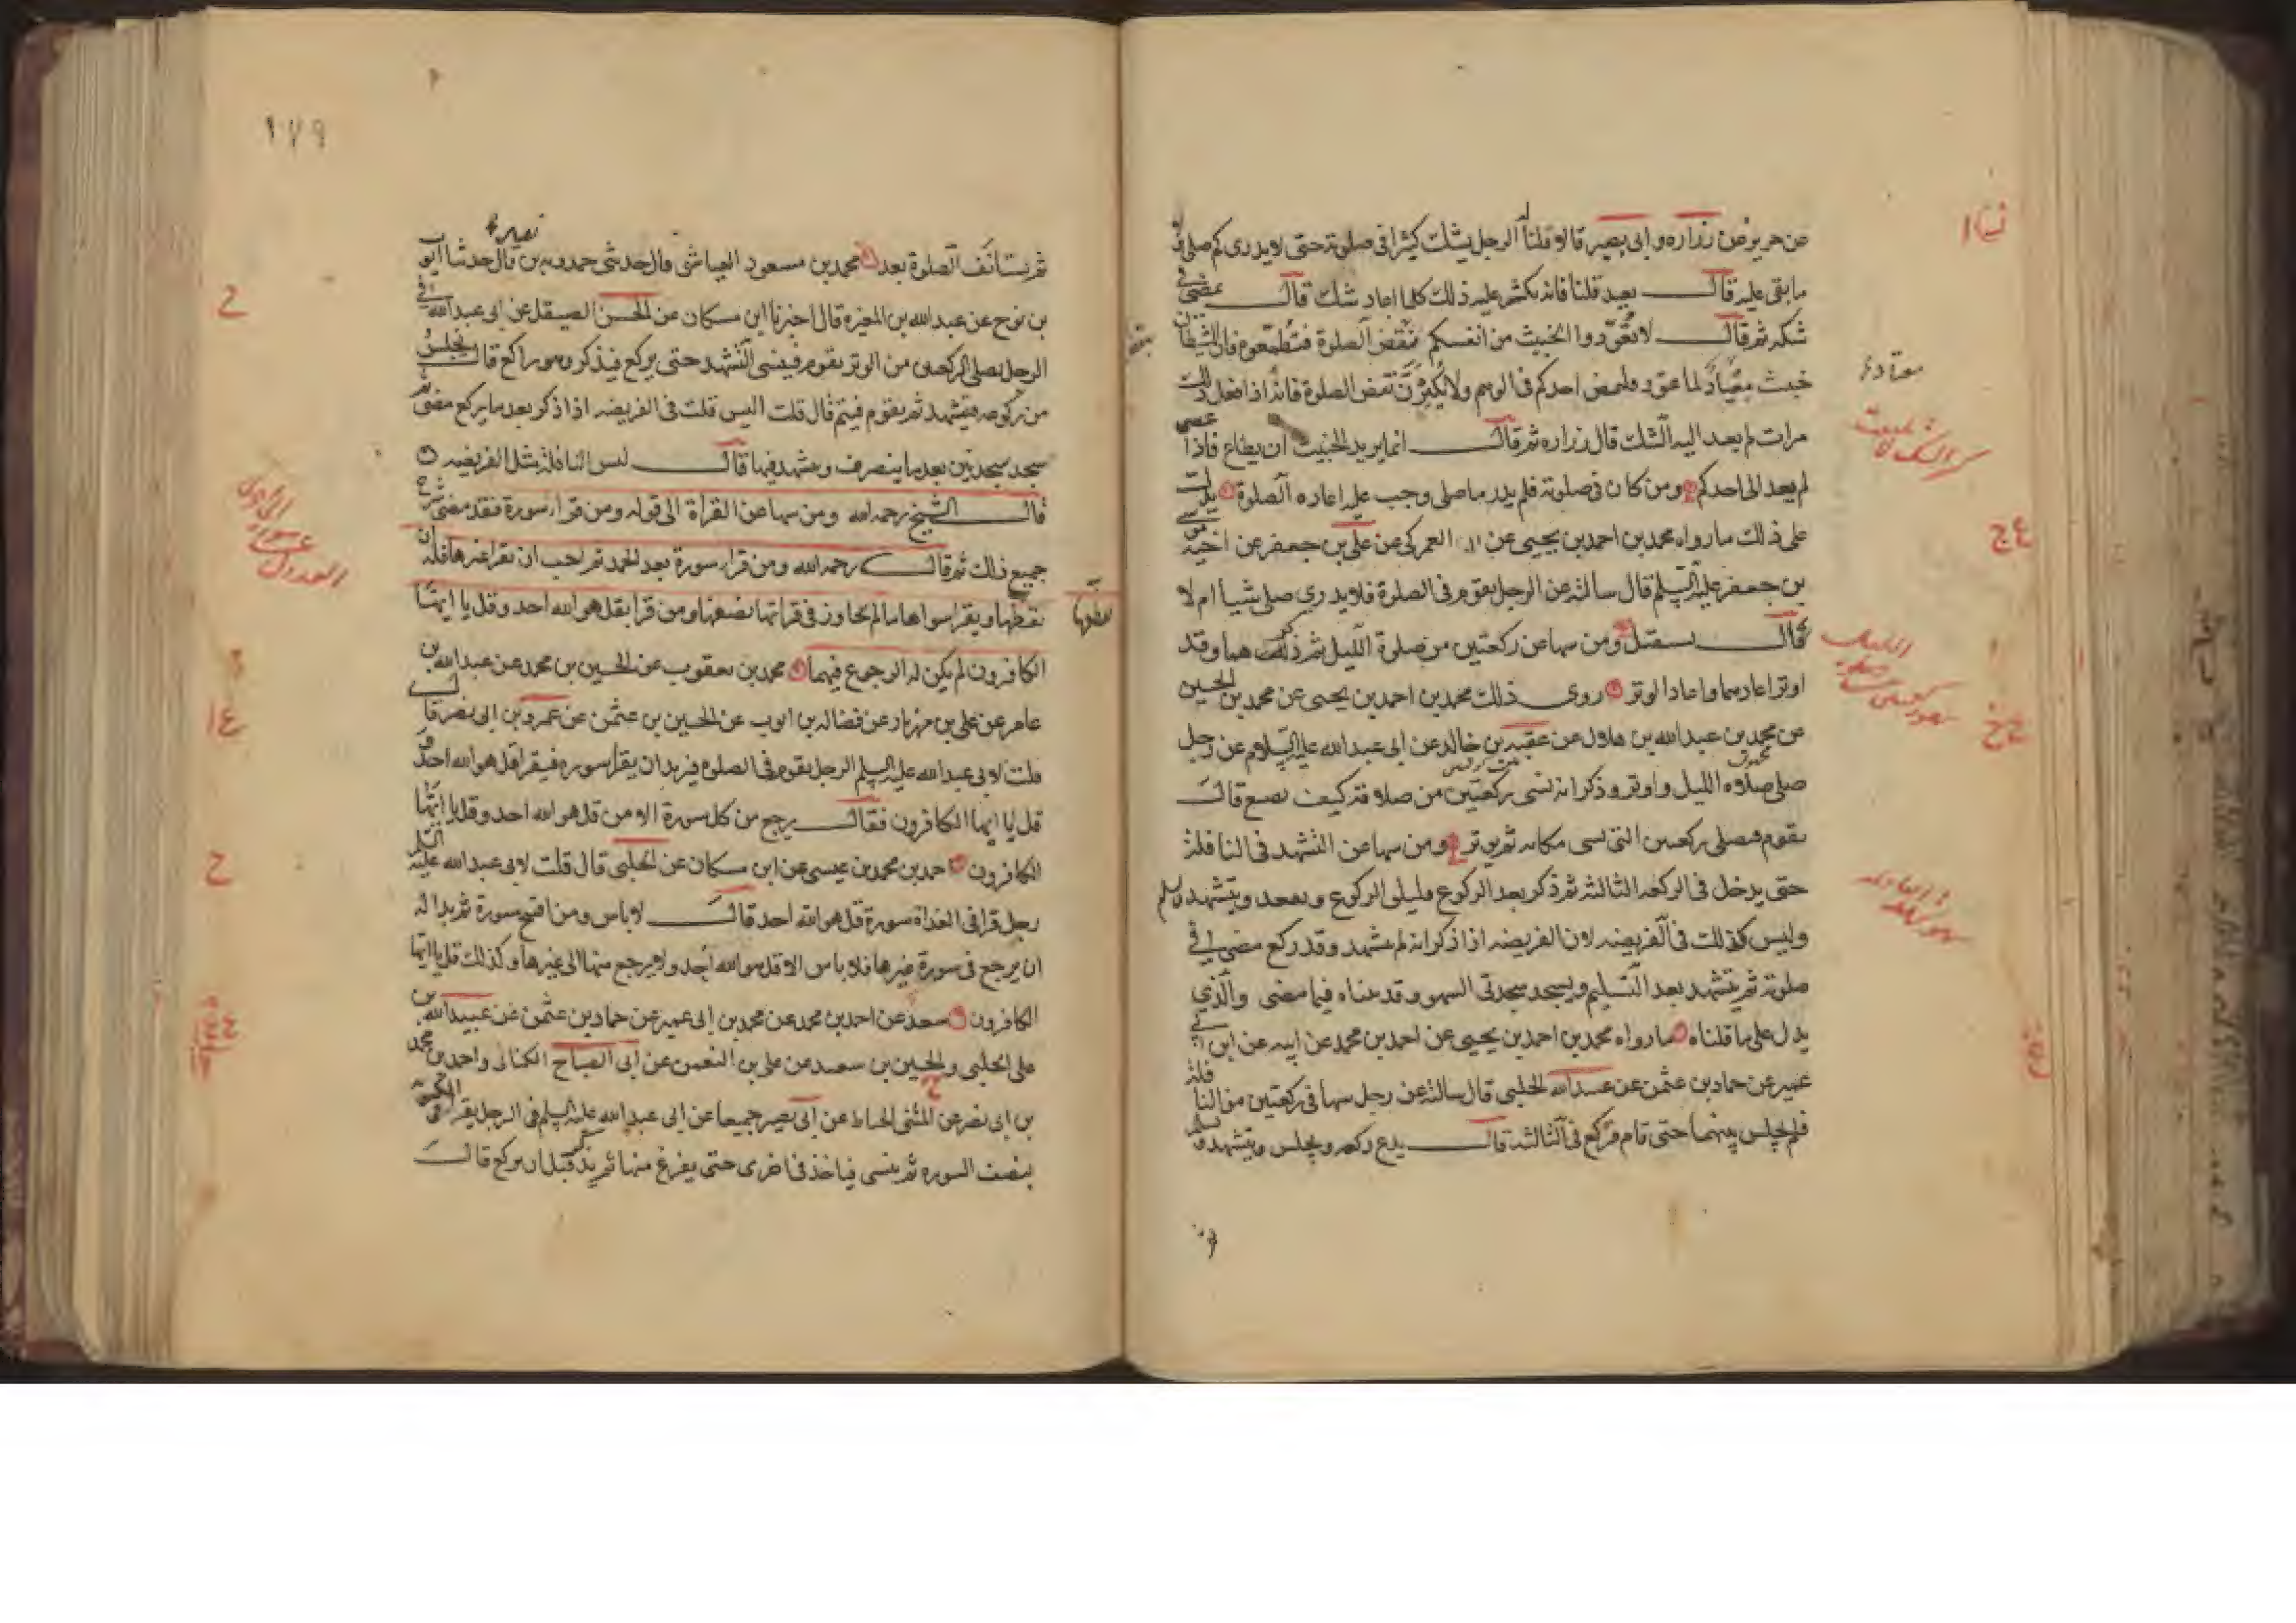 عن حريز عن زراره و ابى بصير قالا قلنا له الرجل يشك كثيرا فى صلوته حتى لا يدرى كم صلى ولا
ما بقى عليه قال يعيد قلنا فانه يكثر عليه ذلك كلما اعاد شك قال يمضى فى
شكه ثم قال لا تعودوا الخبيث من انفسكم نقض الصلوة فتطمعوه فان الشيطان
خبيث معتاد لما عود فليمض احدكم فى الوهم ولا يكثرن نقض الصلوة فانه اذا فعل ذلك
مرات لم يعد اليه الشك قال زراره ثم قال انما يريد الخبيث ان يطاع فاذا عصى
لم يعد الى احدكم ومن كان فى صلوته فلم يدر ما صلى وجب عليه اعاده الصلوة يدل
على ذلك ما رواه محمد بن احمد بن يحيى عن العمركى عن على بن جعفر عن اخيه موسى
بن جعفر عليه السلم قال سالته عن الرجل يقوم فى الصلوة فلا يدرى صلى شيا ام لا
قال يستقبل ومن سها عن ركعتين من صلوة الليل ثم ذكرهما وقد
اوتر اعادهما واعاد الوتر روى ذلك محمد بن احمد بن يحيى عن محمد بن الحسين
عن محمد بن عبد الله بن هلال عن عقبه بن خالد عن ابى عبد الله عليه السلام عن رجل
صلى صلاه الليل واوتر وذكر انه نسى ركعتين من صلاته كيف يصنع قال
يقوم فيصلى ركعتين التى نسى مكانه ثم يوتر ومن سها عن التشهد فى النافلة
حتى يدخل فى الركعه الثالثه ثم ذكر بعد الركوع فليلق الركوع ويقعد ويتشهد ويسلم
وليس كذلك فى الفريضه لان الفريضه اذا ذكر انه لم يتشهد وقد ركع مضى فى
صلوته ثم يتشهد بعد التسليم ويسجد سجدتى السهو وقد بيناه فيما مضى والذى
يدل على ما قلناه ما رواه محمد بن احمد بن يحيى عن احمد بن محمد عن ابيه عن ابن ابى
عمير عن حماد بن عثمن عن عبيد الله الحلبى قال سالته عن رجل سها فى ركعتين من النافلة
فلم يجلس بينهما حتى قام فركع فى الثالثه قال يدع ركعه ويجلس ويتشهد ويسلم
معتاد
١٧٩
ثم يستانف الصلوة بعد محمد بن مسعود العياشى قال حدثنى حمدويه بن نصير قال حدثنا ايوب
بن نوح عن عبد الله بن المغيره قال اخبرنا ابن مسكان عن الحسن الصيقل عن ابى عبد الله فى
الرجل يصلى الركعتين من الوتر يقوم فينسى التشهد حتى يركع فيذكر وهو راكع قال يجلس
من ركوعه فيتشهد ثم يقوم فيتم قال قلت اليس قلت فى الفريضه اذا ذكر بعد ما يركع مضى ثم
سجد سجدتين بعد ما ينصرف ويتشهد فيها قال ليس النافلة مثل الفريضه
قال الشيخ رحمه الله ومن سها عن القراة الى قوله ومن قراء سورة فقد مضى شرح
جميع ذلك ثم قال رحمه الله ومن قراء سورة بعد الحمد ثم احب ان يقرا غيرها فله ان
يقطعها ويقرا سواها ما لم يتجاوز فى قراتها نصفها ومن قرا بقل هو الله احد وقل يا ايها
الكافرون لم يكن له الرجوع فيهما محمد بن يعقوب عن الحسين بن محمد عن عبد الله بن
عامر عن على بن مهزيار عن فضاله بن ايوب عن الحسين بن عثمن عن عمرو بن ابى نصر قال
قلت لابى عبد الله عليه السلم الرجل يقوم فى الصلوه فيريد ان يقرا سوره فيقرا قل هو الله احد و
قل يا ايها الكافرون فقال يرجع من كل سورة الا من قل هو الله احد وقل يا ايها
الكافرون احمد بن محمد بن عيسى عن ابن مسكان عن الحلبى قال قلت لابى عبد الله عليه السلم
رجل قرا فى الغداة سورة قل هو الله احد قال لا باس ومن افتتح سورة ثم بدا له
ان يرجع فى سورة غيرها فلا باس الا قل هو الله احد ولا يرجع منها الى غيرها وكذلك قل يا ايها
الكافرون سعد عن احمد بن محمد عن محمد بن ابى عمير عن حماد بن عثمن عن عبيد الله بن
على الحلبى والحسين بن سعيد عن على بن النعمن عن ابى الصباح الكنانى واحمد بن محمد
بن ابى نصر عن المثنى الحناط عن ابى بصير جميعا عن ابى عبد الله عليه السلم فى الرجل يقرا فى المكتوبة
بنصف السوره ثم ينسى فياخذ فى اخرى حتى يفرغ منها ثم يذكر قبل ان يركع قال